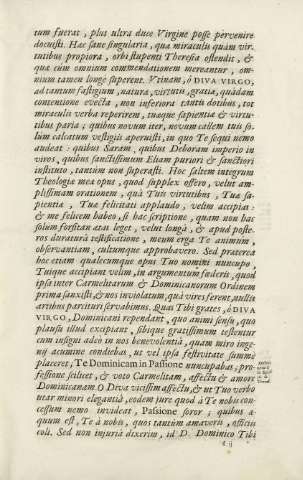 tum fuerat, plus ultra duce Virgine posse pervenire
docuisti. Hæc sane singularia, quæ miraculis quàm vir-
tutibus propiora, orbi stupenti Theresia ostendit, &
quæ cùm omnium commendationem mereantur, om-
nium tamen longè superent. Utinam, ô DIVA VIRGO,
ad tantum fastigium, natura, virtutis, gratia, quàdam
contentione evecta, non inferiora tantis dotibus, tot
miraculis verba reperirem, tuæque sapientia & virtu-
tibus paria; quibus novum iter, novum callem tuis so-
lum calcatum vestigiis aperuisti, in quo Te sequi nemo
audeat: quibus Saram, quibus Deboram imperio in
viros, quibus sanctissimum Eliam puriori & sanctiori
instituto, tantùm non superasti. Hoc saltem integrum
Theologia mea opus, quod supplex offero, velut am-
plissimam orationem, quâ Tuis virtutibus, Tua sa-
pientia, Tua felicitati applaudo, velim accipias:
& me felicem habeo, si hac scriptione, quam non hæc
solùm forsitan ætas leget, velut longâ, & apud poste-
ros duraturâ testificatione, meum erga Te animum,
observantiam, cultumque approbavero. Sed præterea
hoc etiam qualecumque opus Tuo nomini nuncupo,
Tuique accipiant velim, in argumentum fœderis, quod
ipsa inter Carmelitarum & Dominicanorum Ordinem
prima sanxisti, & nos inviolatum, quâ vires ferent, nullis
artibus partituri servabimus. Quas Tibi grates, ô DIVA
VIRGO, Dominicani rependant, quo animi sensu, quo
plausu illud excipiant, sibique gratissimum testentur
cum insigni adeò in nos benevolentiâ, quam miro inge-
nij acumine condiebas, ut vel ipsa festivitate summè
placeret, Te Dominicam in Passione nuncupabas; pro-
fessione scilicet, & voto Carmelitam, affectu & amore
Dominicanam O Diva vicissim affectu, & ut Tuo verbo
utar minori elegantiâ, eodem jure quod à Te nobis con-
cessum nemo invideat, Passione soror; quibus æ-
quum est, Te à nobis, quos tantùm amaveris, officiis
coli. Sed non injuriâ dixerim, id D. Dominico Tibi